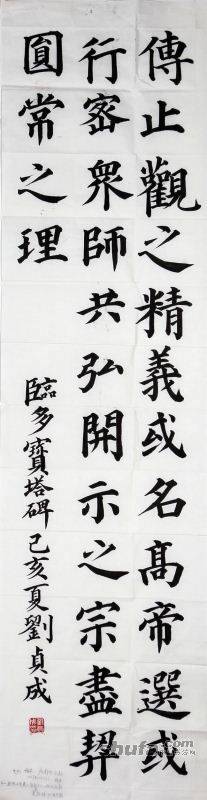 傳止觀之精義或名髙帝選或
行密衆師共弘開示之宗盡契
圓常之理
臨多寶塔碑 己亥夏劉貞成